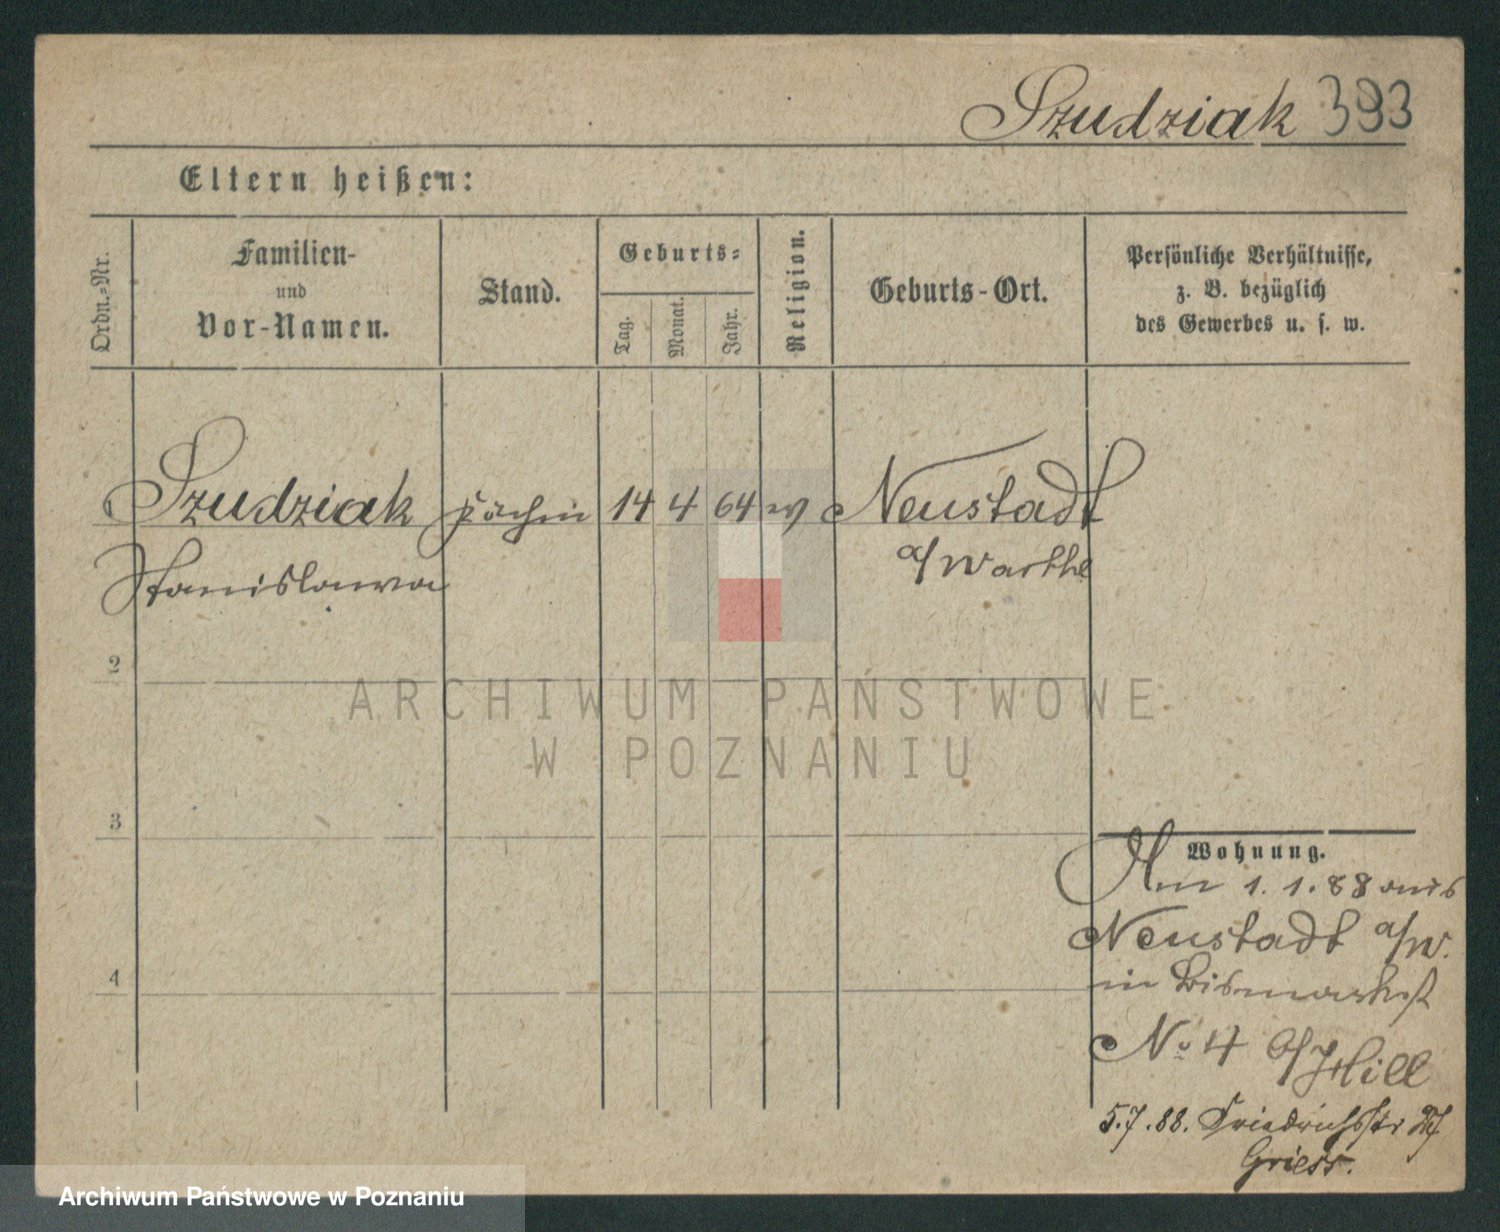 Szudziak 393
Eltern heißen:
Ordn.-Nr.
Familien-
und
Vor-Namen.
Stand.
Geburts-
Tag.
Monat.
Jahr.
Religion.
Geburts-Ort.
Persönliche Verhältnisse,
z. B. bezüglich
des Gewerbes u. s. w.
Szudziak Köchin 14 4 64 Neustadt
Stanislawa a/Warthe
2
3
4
Wohnung.
Am 1.1.88 aus
Neustadt a/W.
in Bismarkst
No 4 b/Hill
5.7.88. Friedrichsstr
Griess.
ARCHIWUM PAŃSTWOWE
W POZNANIU
Archiwum Państwowe w Poznaniu